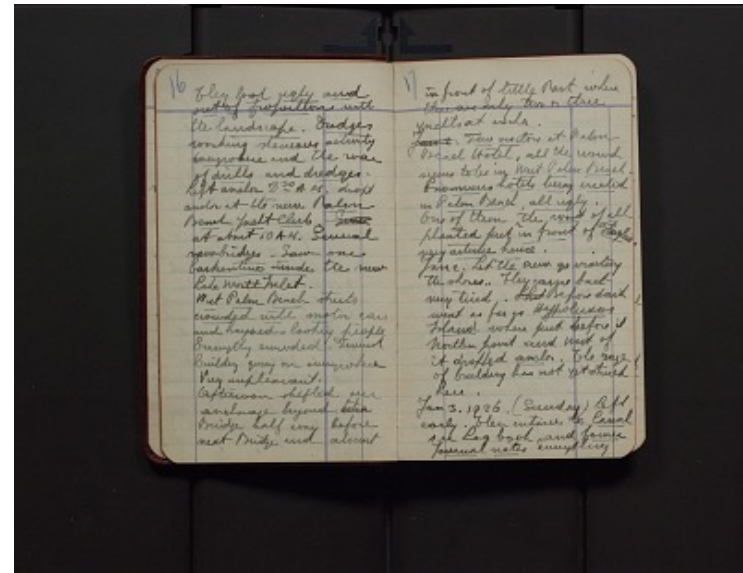 16
They look ugly and
out of proportions with
the landscape. Dredges
working, activity
everywhere and the roar
of drills and dredges.
Left anchor 8 30 A.M. dropt
anchor at the new Palm
Beach Yacht Club
at about 10 A.M. Several
new bridges. Saw one
barkentine inside the new
Lake Worth Inlet.
West Palm Beach streets
crowded with motor cars
and haywood looking people
Everything crowded.
building going on everywhere
Very unpleasant.
Afternoon shifted our
anchorage beyond
Bridge half way before
next Bridge and almost
17
in front of little Port where
there are only two or three
yachts at anchor.
Few visitors at Palm
Beach Hotel, all the crowd
seems to be in West Palm Beach.
Enormous hotels being erected
in Palm Beach, all ugly.
One of them the worst of all
planted just in front of
very artistic house.
Let the crew go visiting
the shores. They came back
very tired. Before dark
went as far as
Island where just before it
Northern point and West of
it dropped anchor. The rage
of building has not yet
here.
Jan 3. 1926. (Sunday) Left
early. Then entered the Canal
see Log book and former
Journal notes everything